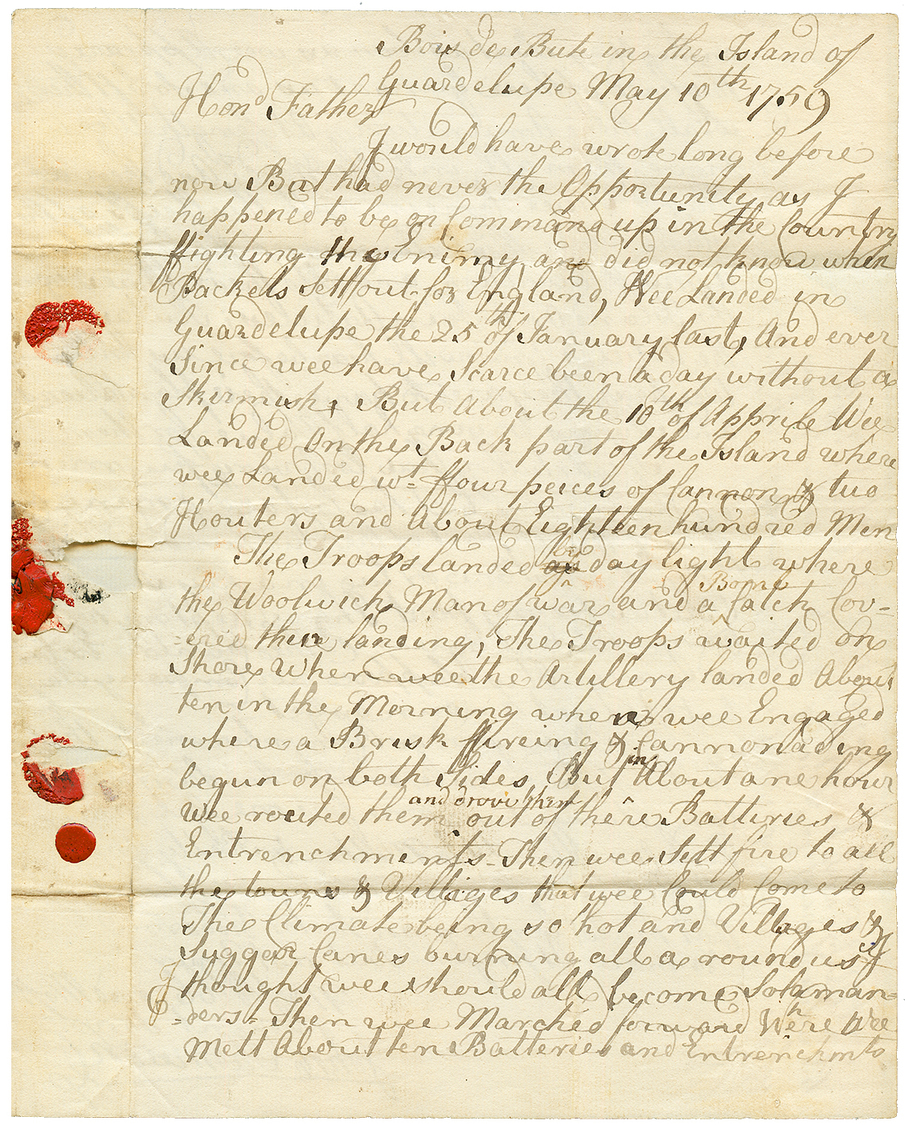 Bois de Bute in the Island of
Guardelupe May 10th 1759
Hond Father
I would have wrote long before
now But had never the Opportunity as I
happened to be on Command up in the Country
ffighting the Enimy and did not know when
Packets Sett out for England, Wee Landed in
Guardelupe the 25 of January last, And ever
Since wee have Scarce been a day without a
Skirmish, But About the 10th of Apprile Wee
Landed On the Back part of the Island where
wee Landed wt ffour peices of Cannon & two
Houters and About Eighteen hundred Men
The Troops landed day light where
the Woolwich Man of war and a Bomb Catch Cov-
-ered their landing, The Troops waited on
Shore When wee the Artillery landed About
ten in the Morning when wee Engaged
where a Brisk ffireing & Cannonading
begun on both Sides, But in About ane hour
wee routed them and drove them out of there Batteries &
Entrenchments - Then wee Sett fire to all
the towns & Villages that wee Could Come to
The Climate being so hot and Villages &
Suggar Canes burning all a round us I
thought wee should all become Solaman-
-ders - Then wee Marched forward Where Wee
Mett About ten Batteries and Entrenchmts